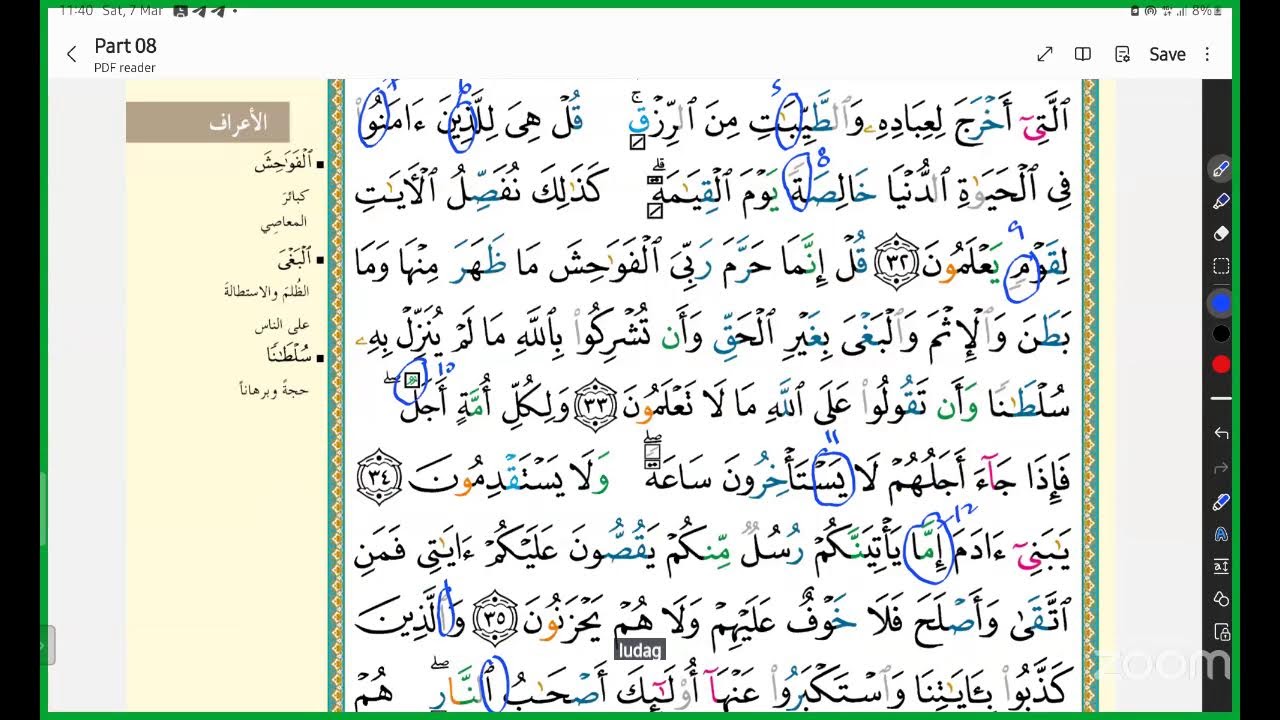 11:40 Sat, 7 Mar
8%
Part 08
PDF reader
Save
ٱلَّتِىٓ أَخْرَجَ لِعِبَادِهِۦ وَٱلطَّيِّبَـٰتِ مِنَ ٱلرِّزْقِ ۚ قُلْ هِىَ لِلَّذِينَ ءَامَنُوا۟
فِى ٱلْحَيَوٰةِ ٱلدُّنْيَا خَالِصَةً يَوْمَ ٱلْقِيَـٰمَةِ ۗ كَذَٰلِكَ نُفَصِّلُ ٱلْـَٔايَـٰتِ
لِقَوْمٍ يَعْلَمُونَ ٣٢ قُلْ إِنَّمَا حَرَّمَ رَبِّىَ ٱلْفَوَٰحِشَ مَا ظَهَرَ مِنْهَا وَمَا
بَطَنَ وَٱلْإِثْمَ وَٱلْبَغْىَ بِغَيْرِ ٱلْحَقِّ وَأَن تُشْرِكُوا۟ بِٱللَّهِ مَا لَمْ يُنَزِّلْ بِهِۦ
سُلْطَـٰنًا وَأَن تَقُولُوا۟ عَلَى ٱللَّهِ مَا لَا تَعْلَمُونَ ٣٣ وَلِكُلِّ أُمَّةٍ أَجَلٌ ۖ
فَإِذَا جَآءَ أَجَلُهُمْ لَا يَسْتَأْخِرُونَ سَاعَةً ۖ وَلَا يَسْتَقْدِمُونَ ٣٤
يَـٰبَنِىٓ ءَادَمَ إِمَّا يَأْتِيَنَّكُمْ رُسُلٌ مِّنكُمْ يَقُصُّونَ عَلَيْكُمْ ءَايَـٰتِى فَمَنِ
ٱتَّقَىٰ وَأَصْلَحَ فَلَا خَوْفٌ عَلَيْهِمْ وَلَا هُمْ يَحْزَنُونَ ٣٥ وَٱلَّذِينَ
كَذَّبُوا۟ بِـَٔايَـٰتِنَا وَٱسْتَكْبَرُوا۟ عَنْهَآ أُو۟لَـٰٓئِكَ أَصْحَـٰبُ ٱلنَّارِ ۖ هُمْ
الأعراف
ٱلْفَوَٰحِشَ
كبائرَ
المعاصِي
ٱلْبَغْىَ
الظُلمَ والاستطالةَ
على الناس
سُلْطَـٰنًا
حجةً وبرهاناً
8
9
10
11
12
ludag
zoom